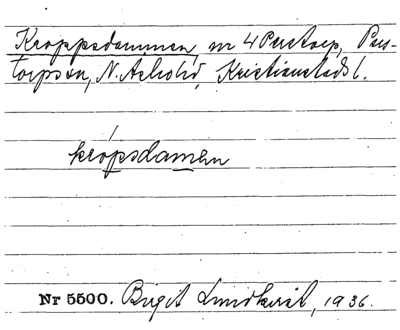 Kroppsdammen nr 4 Pustorp, Pus-
torpsön, N. Åsbohd, Kristianstads l.
krópsdamən
Nr 5500. Birgit Lundkvist, 1936.